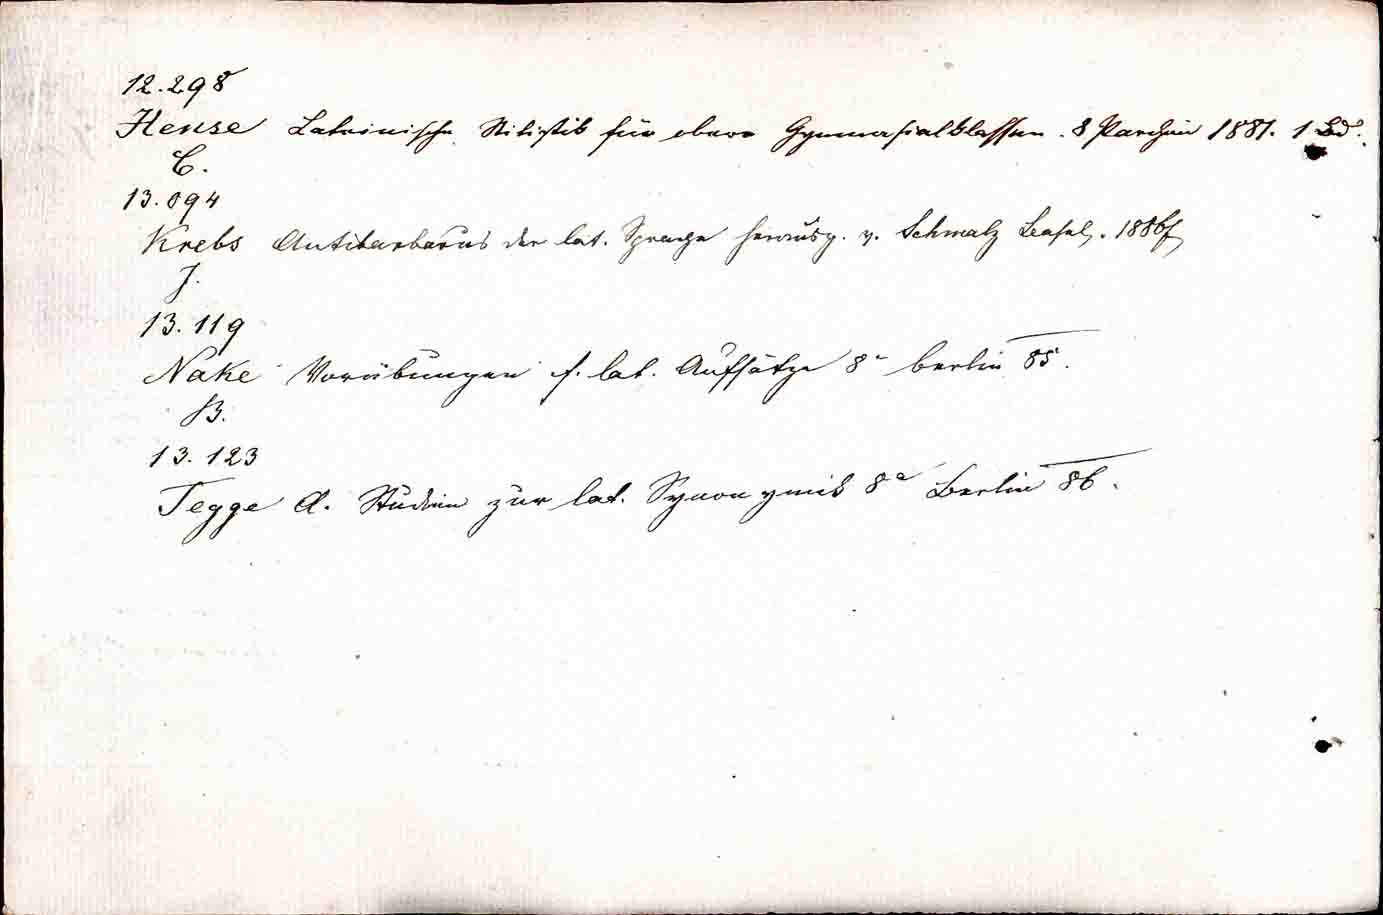 12.298
Hense Lateinische Stilistik für obere Gymnasialklassen. 8 Parchim 1881. 1 Bd.
C.
13.094
Krebs Antibarbarus der lat. Sprache herausg. v. Schmalz Basel. 1886f
J.
13.119
Nake Vorübungen f. lat. Aufsätze 8° Berlin 85.
B.
13.123
Tegge A. Studien zur lat. Synonymik 8° Berlin 86.